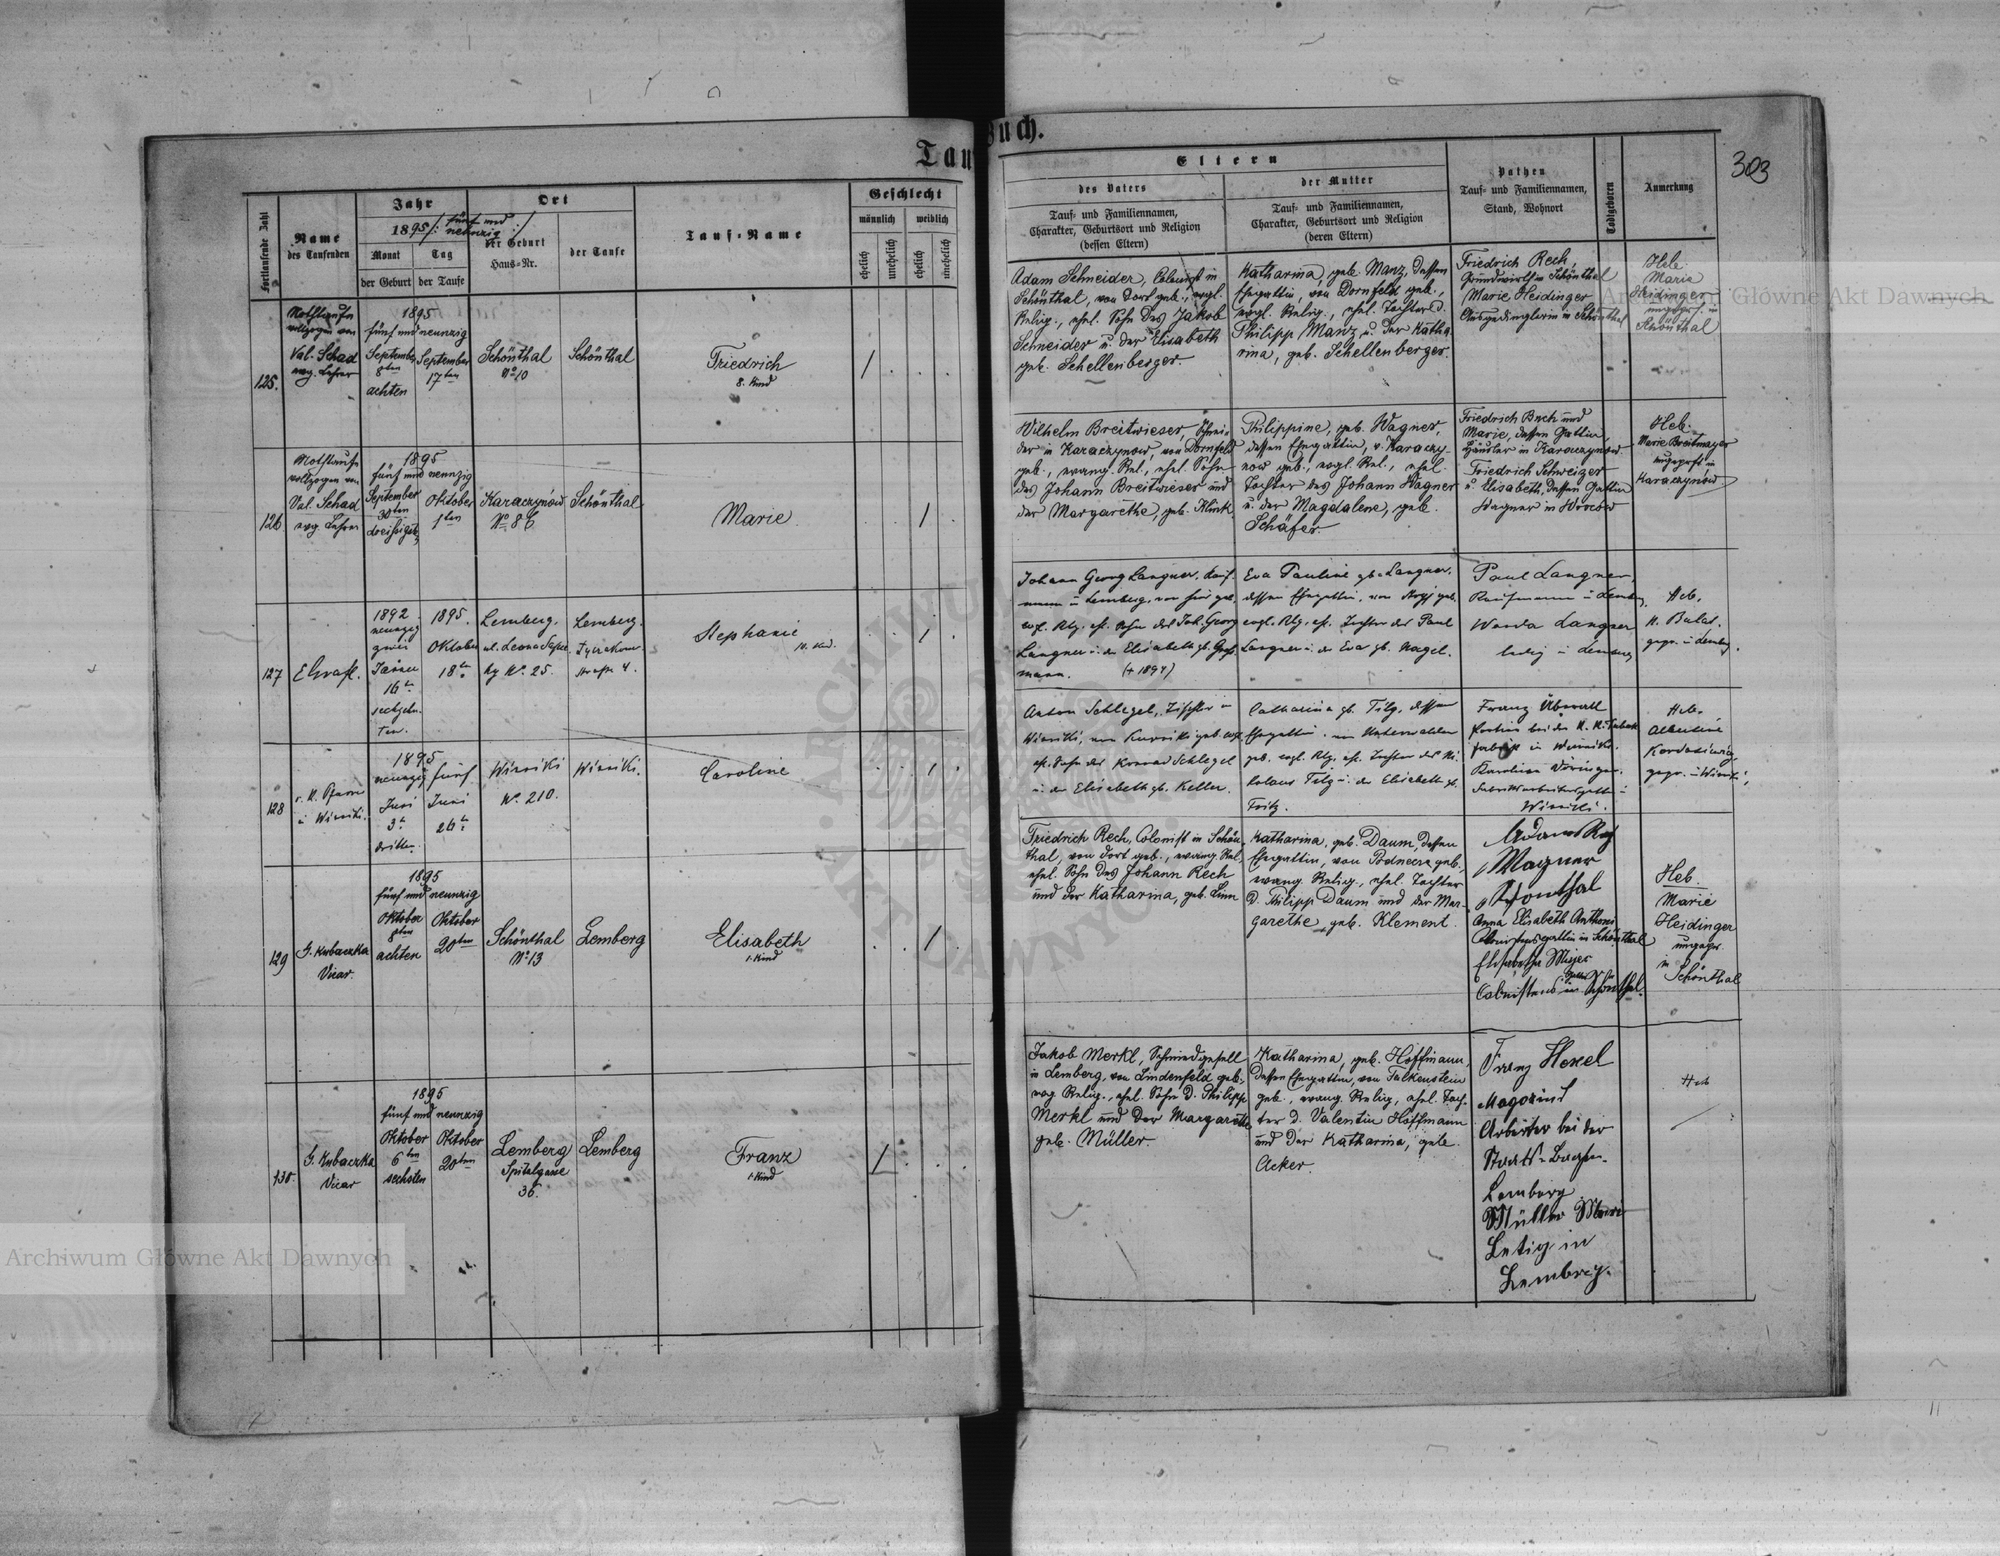 Tauf-Buch.
303
Fortlaufende Zahl
Name
des Taufenden
Jahr
1895 /: fünf und
neunzig :/
Monat
Tag
der Geburt
der Taufe
Ort
der Geburt
Haus-Nr.
der Taufe
Tauf-Name
Geschlecht
männlich
weiblich
ehelich
unehelich
ehelich
unehelich
Eltern
des Vaters
Tauf- und Familiennamen,
Charakter, Geburtsort und Religion
(dessen Eltern)
der Mutter
Tauf- und Familiennamen,
Charakter, Geburtsort und Religion
(deren Eltern)
Pathen
Tauf- und Familiennamen,
Stand, Wohnort
Todtgeboren
Anmerkung
125.
Nothtaufe
vollzogen von
Val. Schad
evg. Lehrer
1895
fünf und neunzig
September
8ten
achten
September
17ten
Schönthal
No 10
Schönthal
Friedrich
8. Kind
/
Adam Schneider, Colonist in
Schönthal, von dort geb., evgl.
Relig., ehel. Sohn des Jakob
Schneider u. der Elisabeth
geb. Schellenberger.
Katharina, geb. Manz, dessen
Ehegattin, von Dornfeld geb.,
evgl. Relig., ehel. Tochter d.
Philipp Manz u. der Katha
rina, geb. Schellenberger.
Friedrich Rech,
Grundwirth in Schönthal
Marie Heidinger
Ausgedinglerin in Schönthal
Heb.
Marie
Heidinger
ungepr. in
Schönthal
126.
Nothtaufe
vollzogen von
Val. Schad
evg. Lehrer
1895
fünf und neunzig
September
30ten
dreißigsten
Oktober
1ten
Karaczynów
No 86
Schönthal
Marie
/
Wilhelm Breitwieser, Schnei-
der in Karaczynow, von Dornfeld
geb., evang. Rel., ehel. Sohn
des Johann Breitwieser und
der Margarethe, geb. Klink
Philippine, geb. Wagner,
dessen Ehegattin, v. Karaczy-
now geb., evgl. Rel., ehel.
Tochter des Johann Wagner
u. der Magdalene, geb.
Schäfer.
Friedrich Bech und
Marie, dessen Gattin,
Häusler in Karaczynow
Friedrich Schweizer
u. Elisabeth, dessen Gattin
Wagner in Wrocow
Heb.
Marie Breitmayer
ungeprft in
Karaczynów
127
1892
neunzig
zwei
Jänner
16t.
sechzehn-
ten.
1895.
Oktober
18t.
Lemberg.
ul. Leona Sapie-
hy No. 25.
Lemberg.
straße 4.
Stephanie
/
Johann Georg Langner, Kauf-
mann in Lemberg, von hier geb.,
evgl. Rlg. eh. Sohn des Joh. Georg
Langner u. der Elisabeth gb. Groß-
mann. (+ 1894)
Eva Pauline gb. Langner,
dessen Ehegattin, von Stryj geb.
evgl. Rlg. eh. Tochter des Paul
Langner u. der Eva gb. Nagel.
Paul Langner,
Kaufmann in Lemberg
Wanda Langner
ledig in Lemberg
Heb.
gepr. in Lemberg.
128
v. K. Pfarrer
in Winniki.
1895
neunzig fünf
Juni
3t.
dritten.
Juni
26t.
Winniki
No. 210.
Winniki.
Caroline
/
Anton Schlegel, Tischler in
Winniki, von geb. evgl.
eh. Sohn des Konrad Schlegel
u. der Elisabeth gb. Keller.
Catharina gb. Tilg, dessen
Ehegattin, von Unterwalden
geb. evgl. Rlg. eh. Tochter des Ni-
kolaus Tilg u. der Elisabeth gb.
Fritz.
Franz Überall
Portier bei der K. K. Tabak-
fabrik in Winniki.
Karolina
Fabriksarbeitersgattin in
Winniki.
Heb.
Albertine
Kordasiewicz
gepr. in Winniki
129
G. Kubaczka
Vicar
1895
fünf und neunzig
Oktober
8ten
achten
Oktober
20ten
Schönthal
No 13
Lemberg
Elisabeth
1. Kind
/
Friedrich Rech, Colonist in Schön-
thal, von dort geb., evang. Rel.,
ehel. Sohn des Johann Rech
und der Katharina, geb. Linn
Katharina, geb. Daum, dessen
Ehegattin, von Podneere geb.,
evang. Relig., ehel. Tochter
d. Philipp Daum und der Mar-
garethe geb. Klement.
Wagner
Schönthal
Anna Elisabeth Anthoni
Colonistensgattin in Schönthal
Elisabetha Meyer
Colonistens gattin in Schönthal.
Heb.
Marie
Heidinger
ungepr.
in
Schönthal
130.
G. Kubaczka
Vicar
1895
fünf und neunzig
Oktober
6ten
sechsten
Oktober
20ten
Lemberg
Spitalgasse
36.
Lemberg
Franz
1. Kind
/
Jakob Merkl, Schmiedgesell
in Lemberg, von Lindenfeld geb.,
evg. Relig., ehel. Sohn d. Philipp
Merkl und der Margarethe
geb. Müller
Katharina, geb. Hoffmann,
dessen Ehegattin, von Falkenstein
geb., evang. Relig., ehel. Toch-
ter d. Valentin Hoffmann
und der Katharina, geb.
Acker.
Franz Hexel
Magazins
Arbeiter bei der
Staats-Bahn.
Lemberg
Müller Marie
Letig in
Lemberg.
Heb
Archiwum Główne Akt Dawnych
Archiwum Główne Akt Dawnych